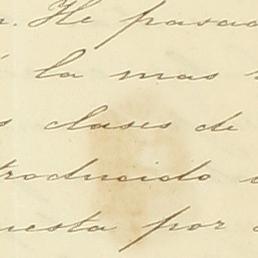 . He pasad
á la mas
s clases de
troducido
uesta por